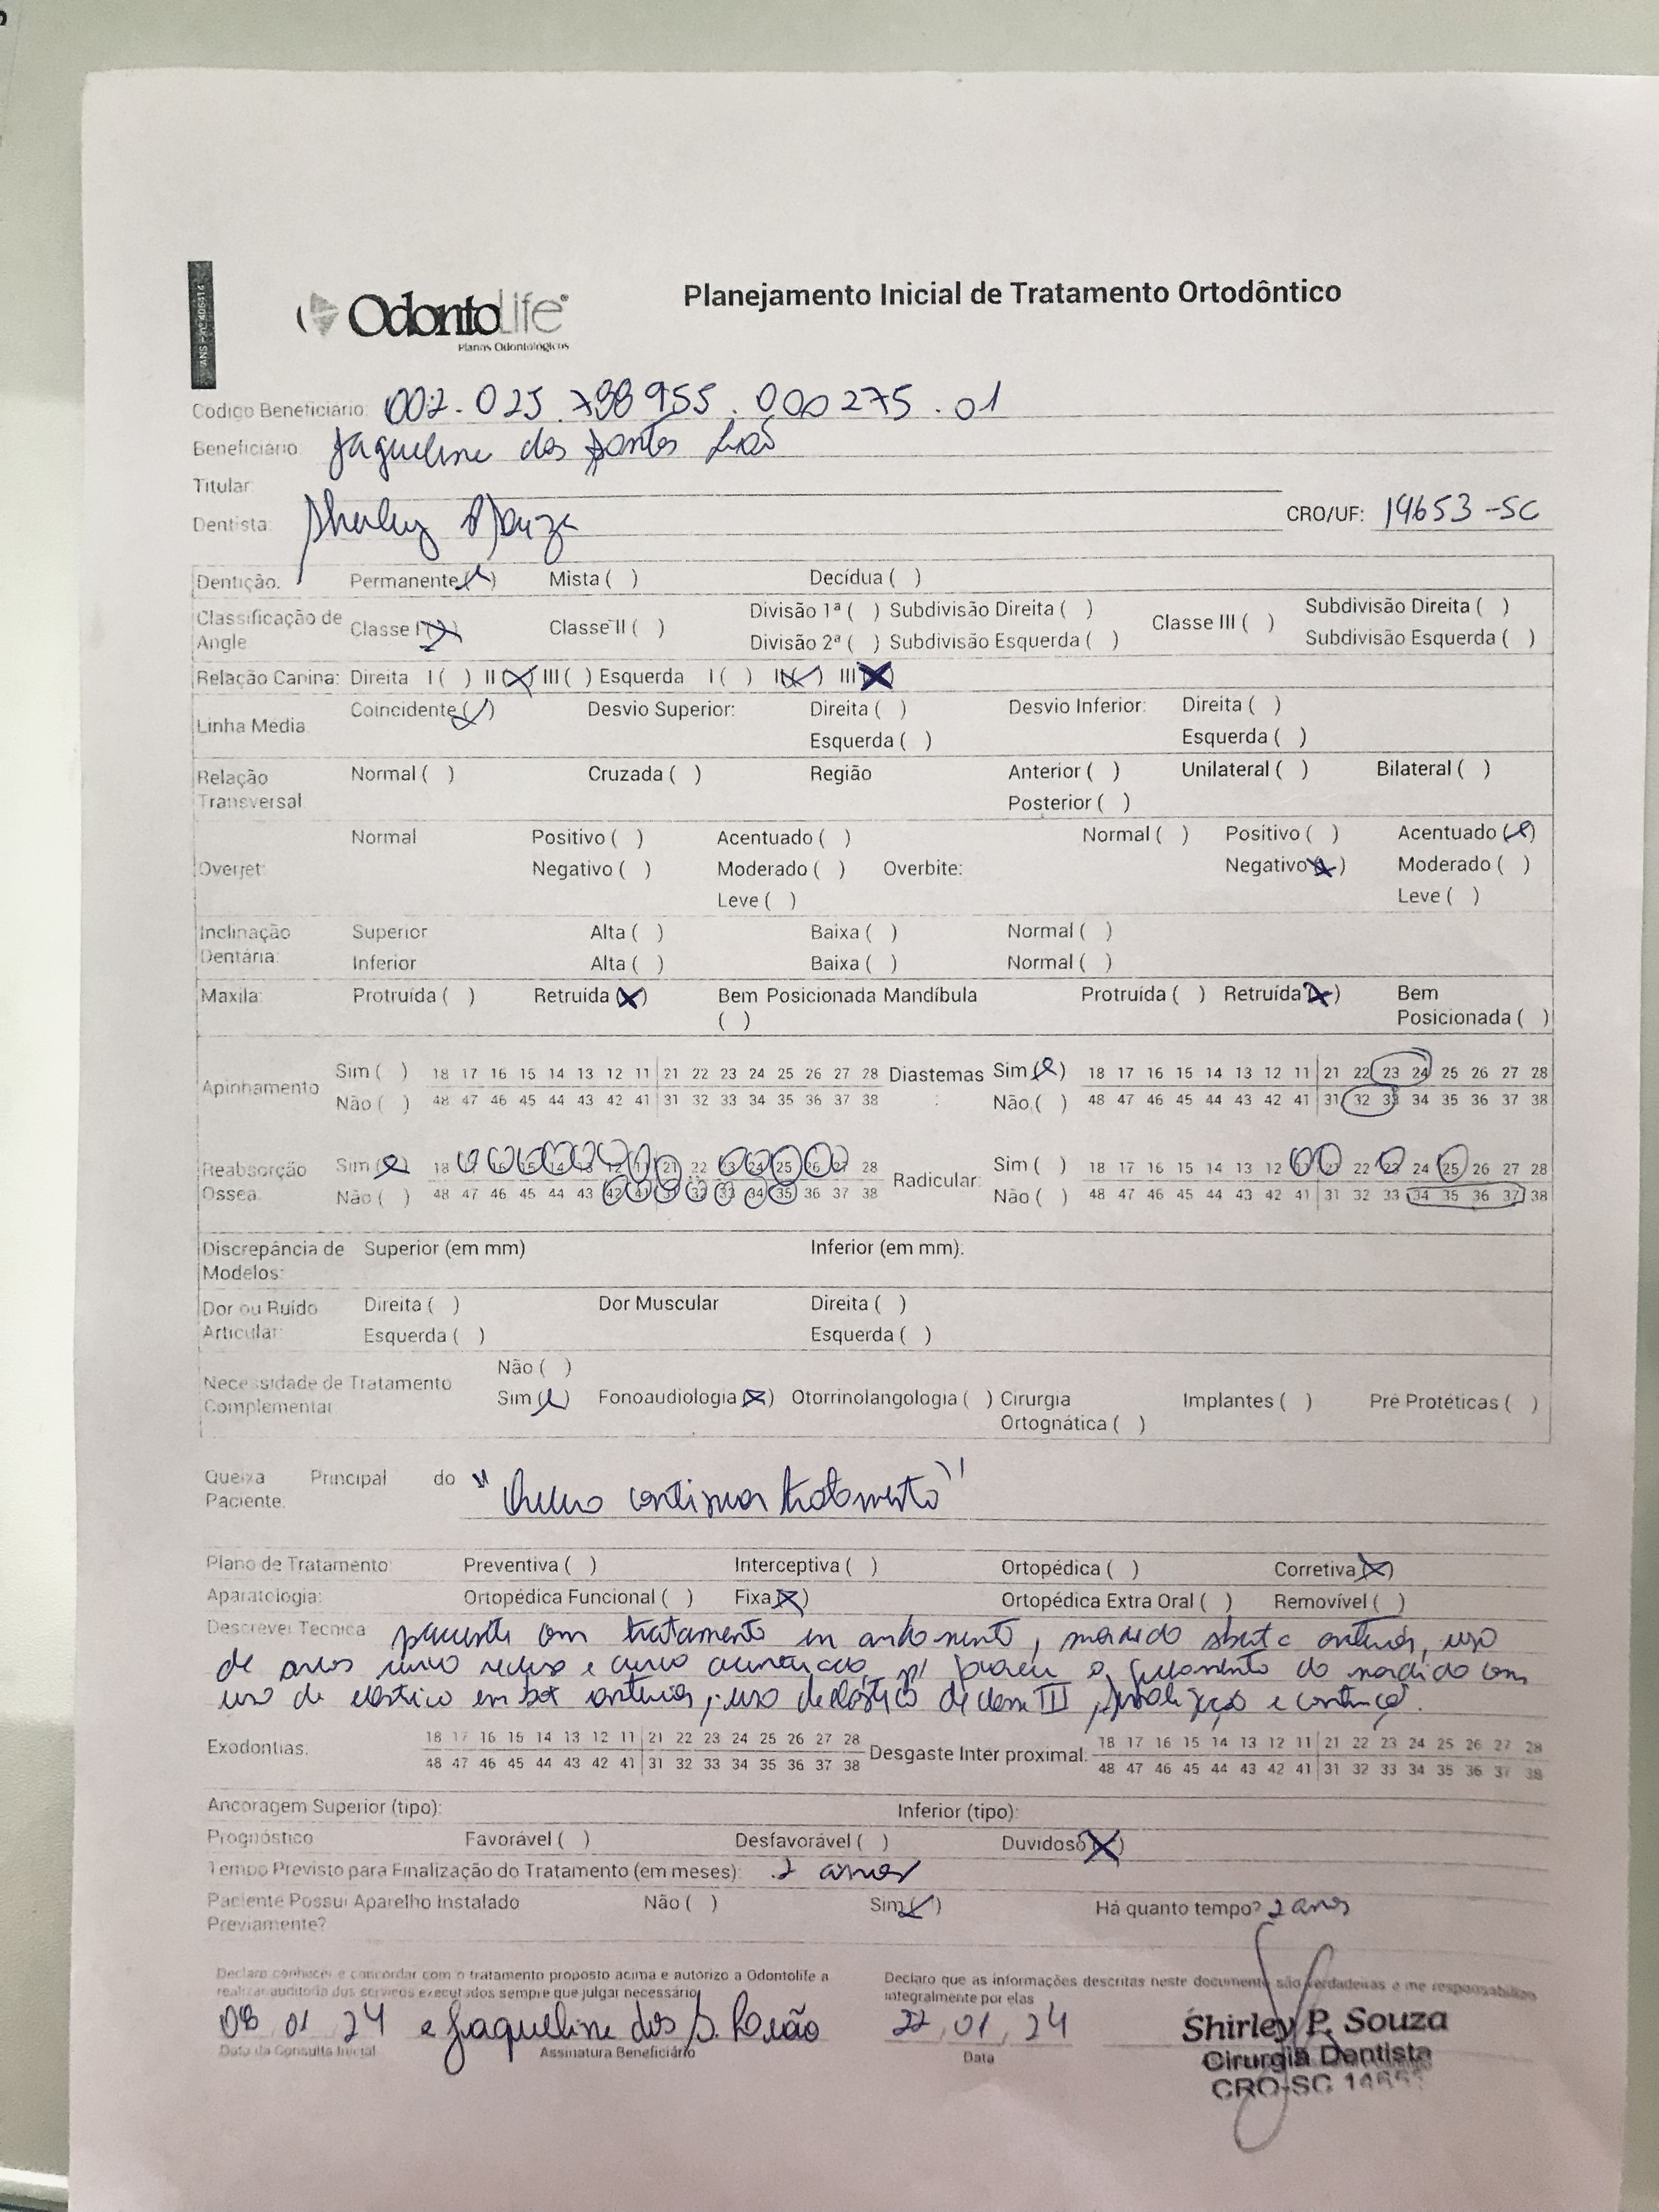 ANS - nº 406414
OdontoLife®
Planos Odontológicos
Planejamento Inicial de Tratamento Ortodôntico
Código Beneficiário: 002.025.798955.000275.01
Beneficiário: Jaqueline dos Santos
Titular:
Dentista: Shirley Souza CRO/UF: 14653-SC
Dentição: Permanente (X) Mista ( ) Decídua ( )
Classificação de Angle Classe I (X) Classe II ( ) Divisão 1ª ( ) Subdivisão Direita ( ) Classe III ( ) Subdivisão Direita ( )
Divisão 2ª ( ) Subdivisão Esquerda ( ) Subdivisão Esquerda ( )
Relação Canina: Direita I ( ) II (X) III ( ) Esquerda I ( ) II (X) III (X)
Linha Média Coincidente (X) Desvio Superior: Direita ( ) Desvio Inferior: Direita ( )
Esquerda ( ) Esquerda ( )
Relação Transversal Normal ( ) Cruzada ( ) Região Anterior ( ) Unilateral ( ) Bilateral ( )
Posterior ( )
Normal Positivo ( ) Acentuado ( ) Normal ( ) Positivo ( ) Acentuado (X)
Overjet: Negativo ( ) Moderado ( ) Overbite: Negativo (X) Moderado ( )
Leve ( ) Leve ( )
Inclinação Dentária: Superior Alta ( ) Baixa ( ) Normal ( )
Inferior Alta ( ) Baixa ( ) Normal ( )
Maxila: Protruída ( ) Retruída (X) Bem Posicionada ( ) Mandíbula Protruída ( ) Retruída (X) Bem Posicionada ( )
Apinhamento Sim ( ) 18 17 16 15 14 13 12 11 21 22 23 24 25 26 27 28 Diastemas Sim (X) 18 17 16 15 14 13 12 11 21 22 23 24 25 26 27 28
Não ( ) 48 47 46 45 44 43 42 41 31 32 33 34 35 36 37 38 : Não ( ) 48 47 46 45 44 43 42 41 31 32 33 34 35 36 37 38
Reabsorção Óssea: Sim (X) 18 17 16 15 14 13 12 11 21 22 23 24 25 26 27 28 Radicular: Sim ( ) 18 17 16 15 14 13 12 11 21 22 23 24 25 26 27 28
Não ( ) 48 47 46 45 44 43 42 41 31 32 33 34 35 36 37 38 Não ( ) 48 47 46 45 44 43 42 41 31 32 33 34 35 36 37 38
Discrepância de Modelos: Superior (em mm) Inferior (em mm):
Dor ou Ruído Articular: Direita ( ) Dor Muscular Direita ( )
Esquerda ( ) Esquerda ( )
Não ( )
Necessidade de Tratamento Complementar Sim (X) Fonoaudiologia (X) Otorrinolangologia ( ) Cirurgia Ortognática ( ) Implantes ( ) Pré Protéticas ( )
Queixa Principal do Paciente. "Quero continuar tratamento"
Plano de Tratamento: Preventiva ( ) Interceptiva ( ) Ortopédica ( ) Corretiva (X)
Aparatologia: Ortopédica Funcional ( ) Fixa (X) Ortopédica Extra Oral ( ) Removível ( )
Descrever Técnica paciente com tratamento em andamento, mordida aberta anterior, uso
de arcos curva reversa e curva acentuada p/ fechamento da mordida com
uso de elástico em box anterior, uso de elástico de classe III, finalização e contenção.
Exodontias: 18 17 16 15 14 13 12 11 21 22 23 24 25 26 27 28 Desgaste Inter proximal: 18 17 16 15 14 13 12 11 21 22 23 24 25 26 27 28
48 47 46 45 44 43 42 41 31 32 33 34 35 36 37 38 48 47 46 45 44 43 42 41 31 32 33 34 35 36 37 38
Ancoragem Superior (tipo): Inferior (tipo):
Prognóstico Favorável ( ) Desfavorável ( ) Duvidoso (X)
Tempo Previsto para Finalização do Tratamento (em meses): 2 anos
Paciente Possui Aparelho Instalado Previamente? Não ( ) Sim (X) Há quanto tempo? 2 anos
Declaro conhecer e concordar com o tratamento proposto acima e autorizo a Odontolife a
realizar auditoria dos serviços executados sempre que julgar necessário
Declaro que as informações descritas neste documento são verdadeiras e me responsabilizo
integralmente por elas
08 01 24 Jaqueline dos S. 22 01 24
Data da Consulta Inicial Assinatura Beneficiário Data
Shirley P. Souza
Cirurgiã Dentista
CRO-SC 14653